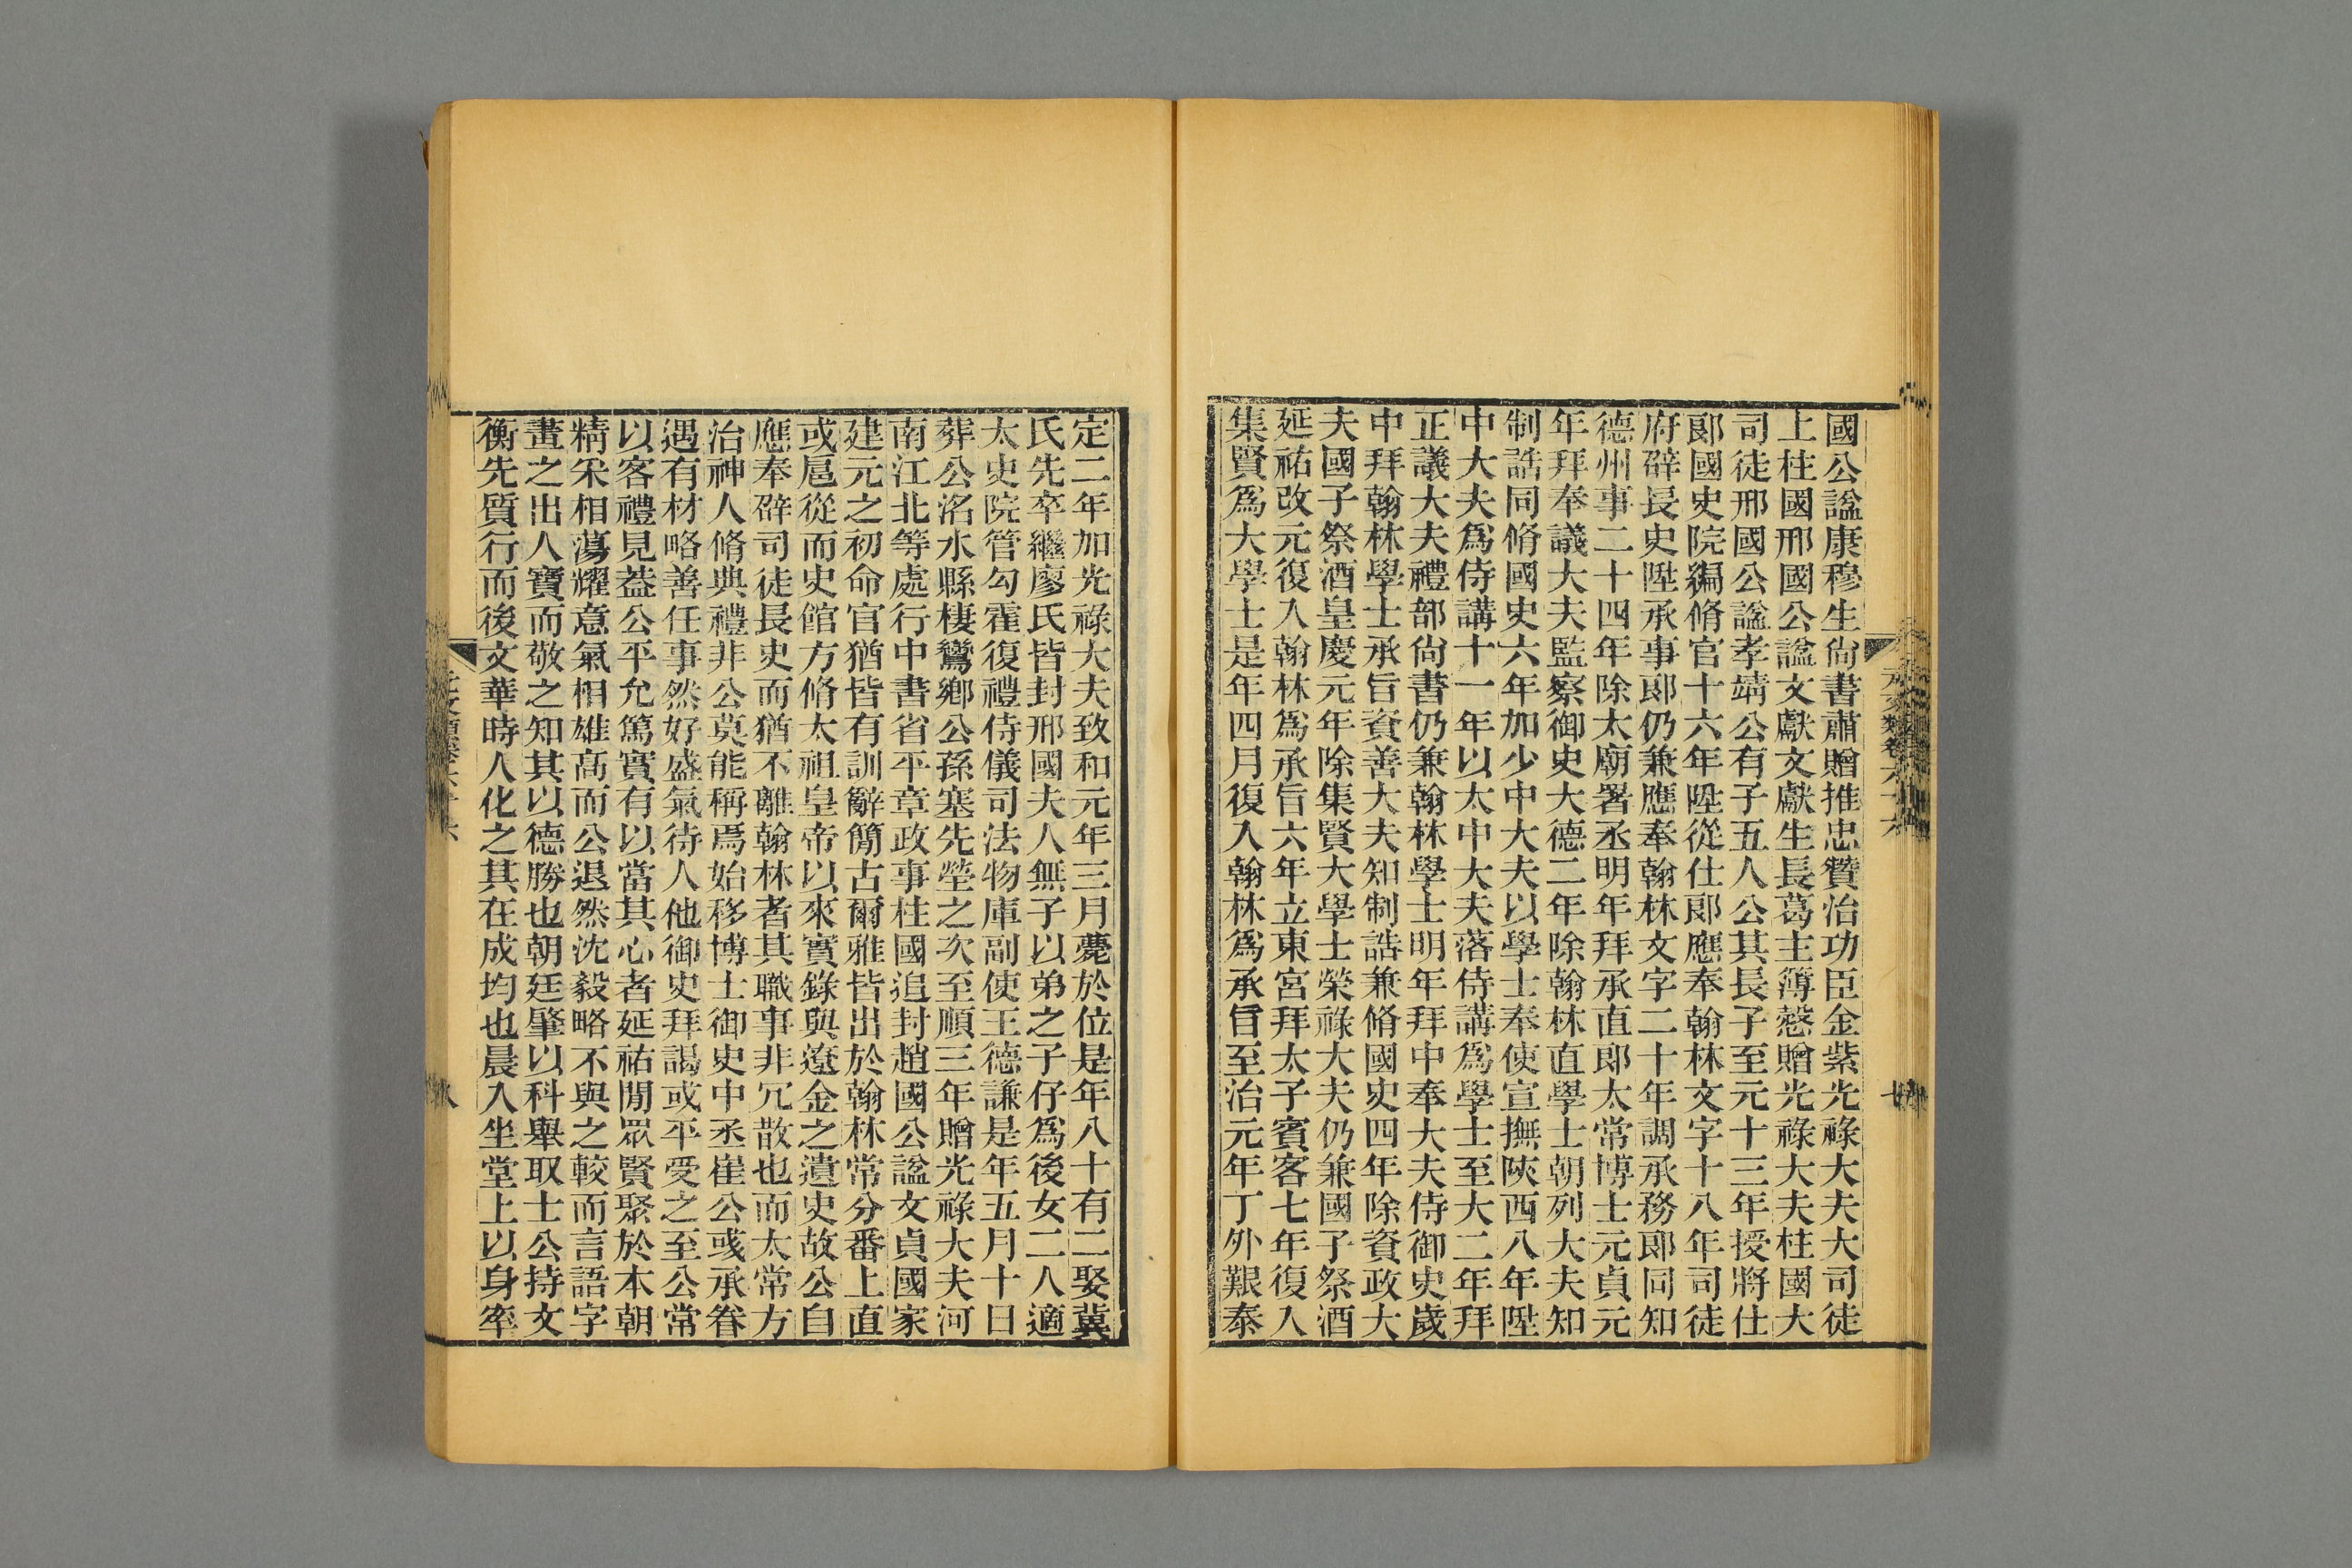 國公諡康穆生尙書肅贈推忠贊治功臣金紫光祿大夫大司徒
上柱國邢國公諡文獻文獻生長葛主簿慤贈光祿大夫柱國大
司徒邢國公諡孝靖公有子五人公其長子至元十三年授將仕
郞國史院編脩官十六年陞從仕郞應奉翰林文字十八年司徒
府辟長史陞承事郞仍兼應奉翰林文字二十年調承務郞同知
德州事二十四年除太廟署丞明年拜承直郞太常博士元貞元
年拜奉議大夫監察御史大德二年除翰林直學士朝列大夫知
制誥同脩國史六年加少中大夫以學士奉使宣撫陝西八年陞
中大夫爲侍講十一年以太中大夫落侍講爲學士至大二年拜
正議大夫禮部尙書仍兼翰林學士明年拜中奉大夫侍御史歲
中拜翰林學士承旨資善大夫知制誥兼脩國史四年除資政大
夫國子祭酒皇慶元年除集賢大學士榮祿大夫仍兼國子祭酒
延祐改元復入翰林爲承旨六年立東宮拜太子賓客七年復入
集賢爲大學士是年四月復入翰林爲承旨至治元年丁外艱泰
定二年加光祿大夫致和元年三月薨於位是年八十有二娶冀
氏先卒繼廖氏皆封邢國夫人無子以弟之子仔爲後女二人適
太史院管勾霍復禮侍儀司法物庫副使王德謙是年五月十日
葬公洺水縣棲鸞鄉公孫塞先塋之次至順三年贈光祿大夫河
南江北等處行中書省平章政事柱國追封趙國公諡文貞國家
建元之初命官猶皆有訓辭簡古爾雅皆出於翰林常分番上直
或扈從而史館方脩太祖皇帝以來實錄與遼金之遺史故公自
應奉辟司徒長史而猶不離翰林者其職事非冗散也而太常方
治神人脩典禮非公莫能稱焉始移博士御史中丞崔公彧承眷
遇有材略善任事然好盛氣待人他御史拜謁或平受之至公常
以客禮見葢公平允篤實有以當其心者延祐閒眾賢聚於本朝
精采相蕩耀意氣相雄高而公退然沈毅略不與之較而言語字
畫之出人寶而敬之知其以德勝也朝廷肇以科舉取士公持文
衡先質行而後文華時人化之其在成均也晨入坐堂上以身率